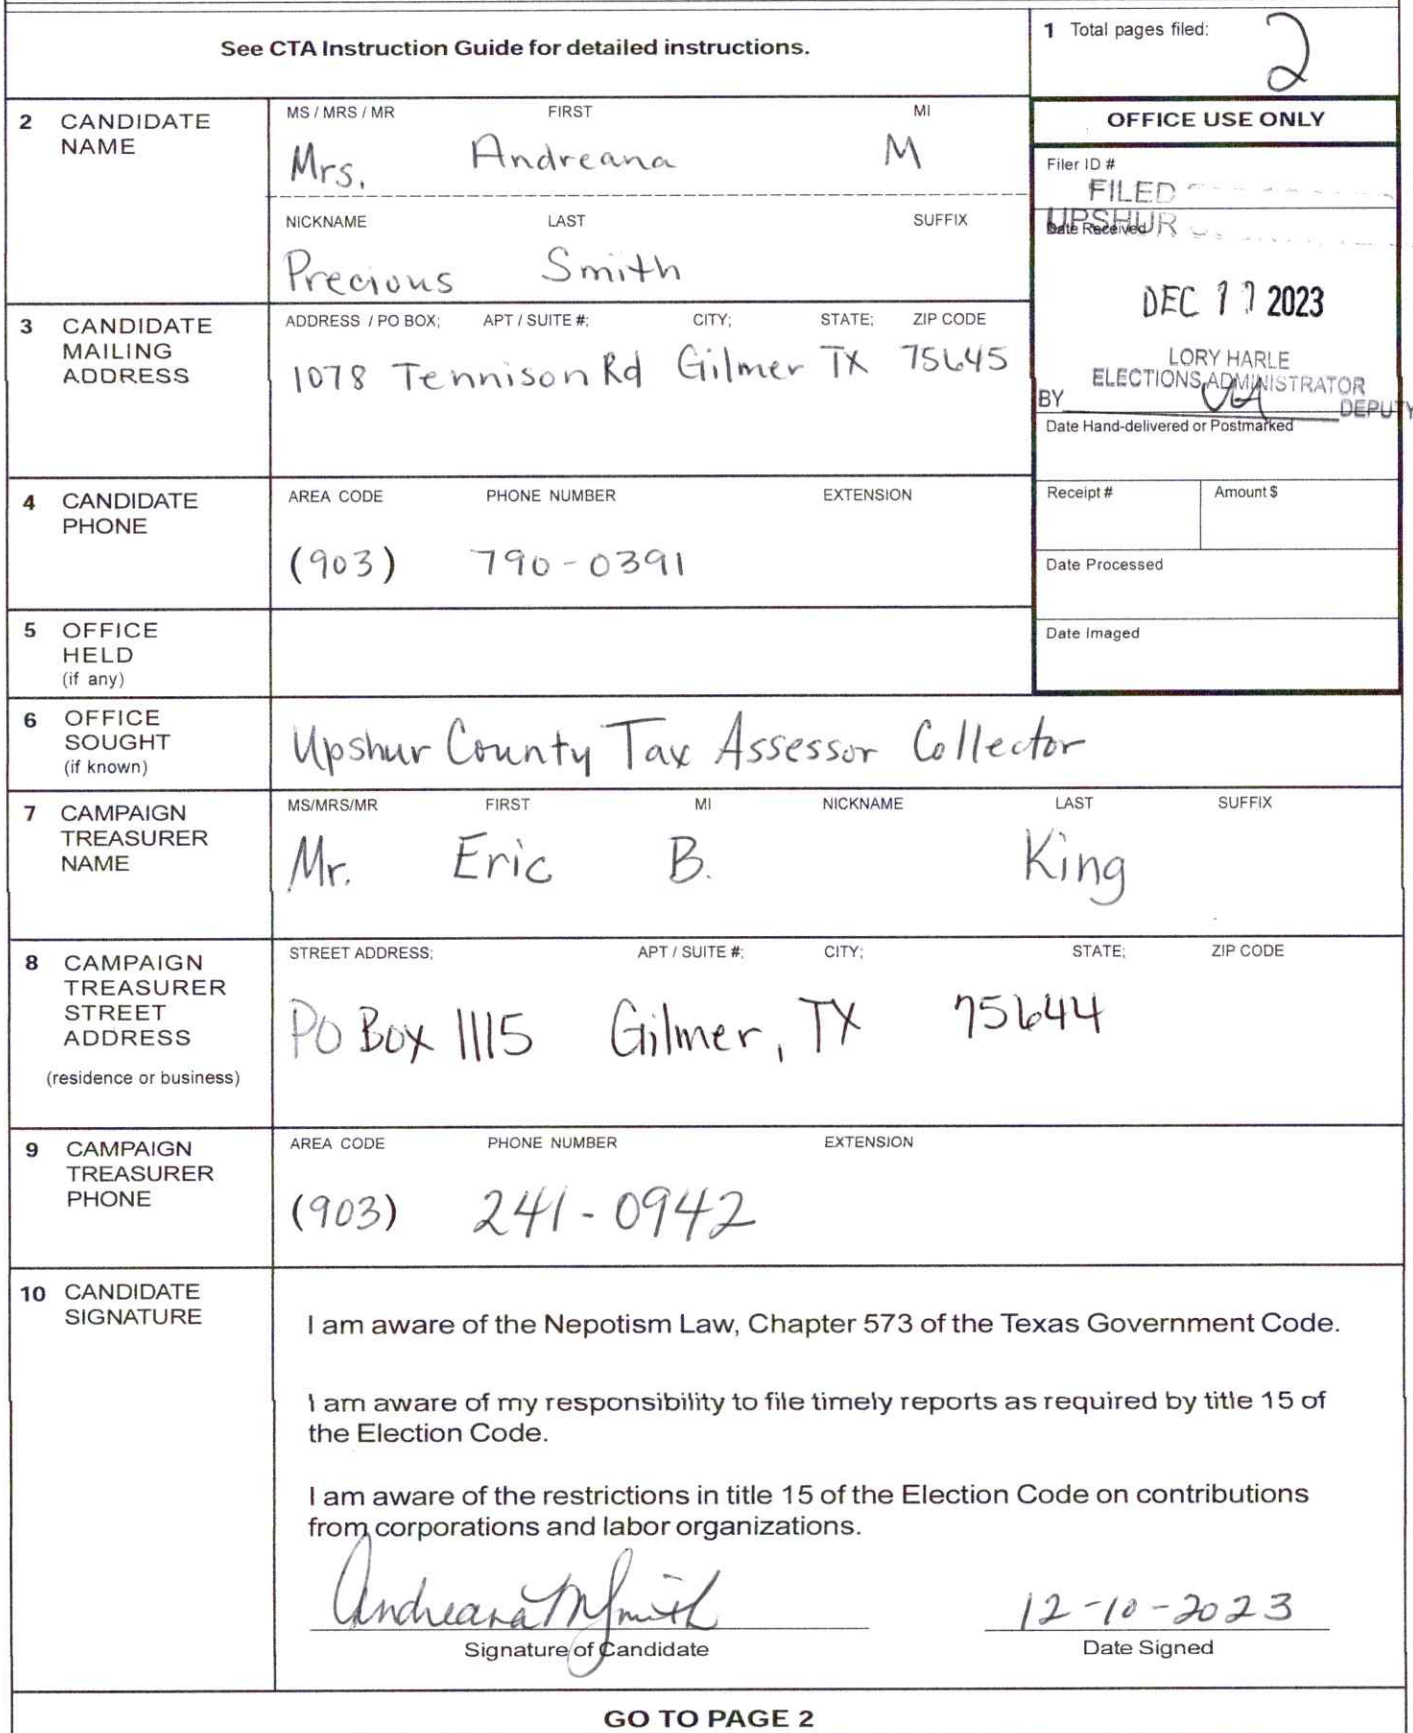 See CTA Instruction Guide for detailed instructions.
1 Total pages filed:
2
2 CANDIDATE NAME
MS / MRS / MR FIRST MI
Mrs. Andreana M
NICKNAME LAST SUFFIX
Precious Smith
OFFICE USE ONLY
Filer ID #
FILED
UPSHUR
Date Received
DEC 2023
LORY HARLE
ELECTIONS ADMINISTRATOR
BY DEPUTY
Date Hand-delivered or Postmarked
Receipt # Amount $
Date Processed
Date Imaged
3 CANDIDATE MAILING ADDRESS
ADDRESS / PO BOX; APT / SUITE #; CITY; STATE; ZIP CODE
1078 Tennison Rd Gilmer TX 75645
4 CANDIDATE PHONE
AREA CODE PHONE NUMBER EXTENSION
(903) 790-0391
5 OFFICE HELD
(if any)
6 OFFICE SOUGHT
(if known)
Upshur County Tax Assessor Collector
7 CAMPAIGN TREASURER NAME
MS/MRS/MR FIRST MI NICKNAME LAST SUFFIX
Mr. Eric B. King
8 CAMPAIGN TREASURER STREET ADDRESS
(residence or business)
STREET ADDRESS; APT / SUITE #; CITY; STATE; ZIP CODE
PO Box 1115 Gilmer, TX 75644
9 CAMPAIGN TREASURER PHONE
AREA CODE PHONE NUMBER EXTENSION
(903) 241-0942
10 CANDIDATE SIGNATURE
I am aware of the Nepotism Law, Chapter 573 of the Texas Government Code.
I am aware of my responsibility to file timely reports as required by title 15 of
the Election Code.
I am aware of the restrictions in title 15 of the Election Code on contributions
from corporations and labor organizations.
Andreana M Smith 12-10-2023
Signature of Candidate Date Signed
GO TO PAGE 2